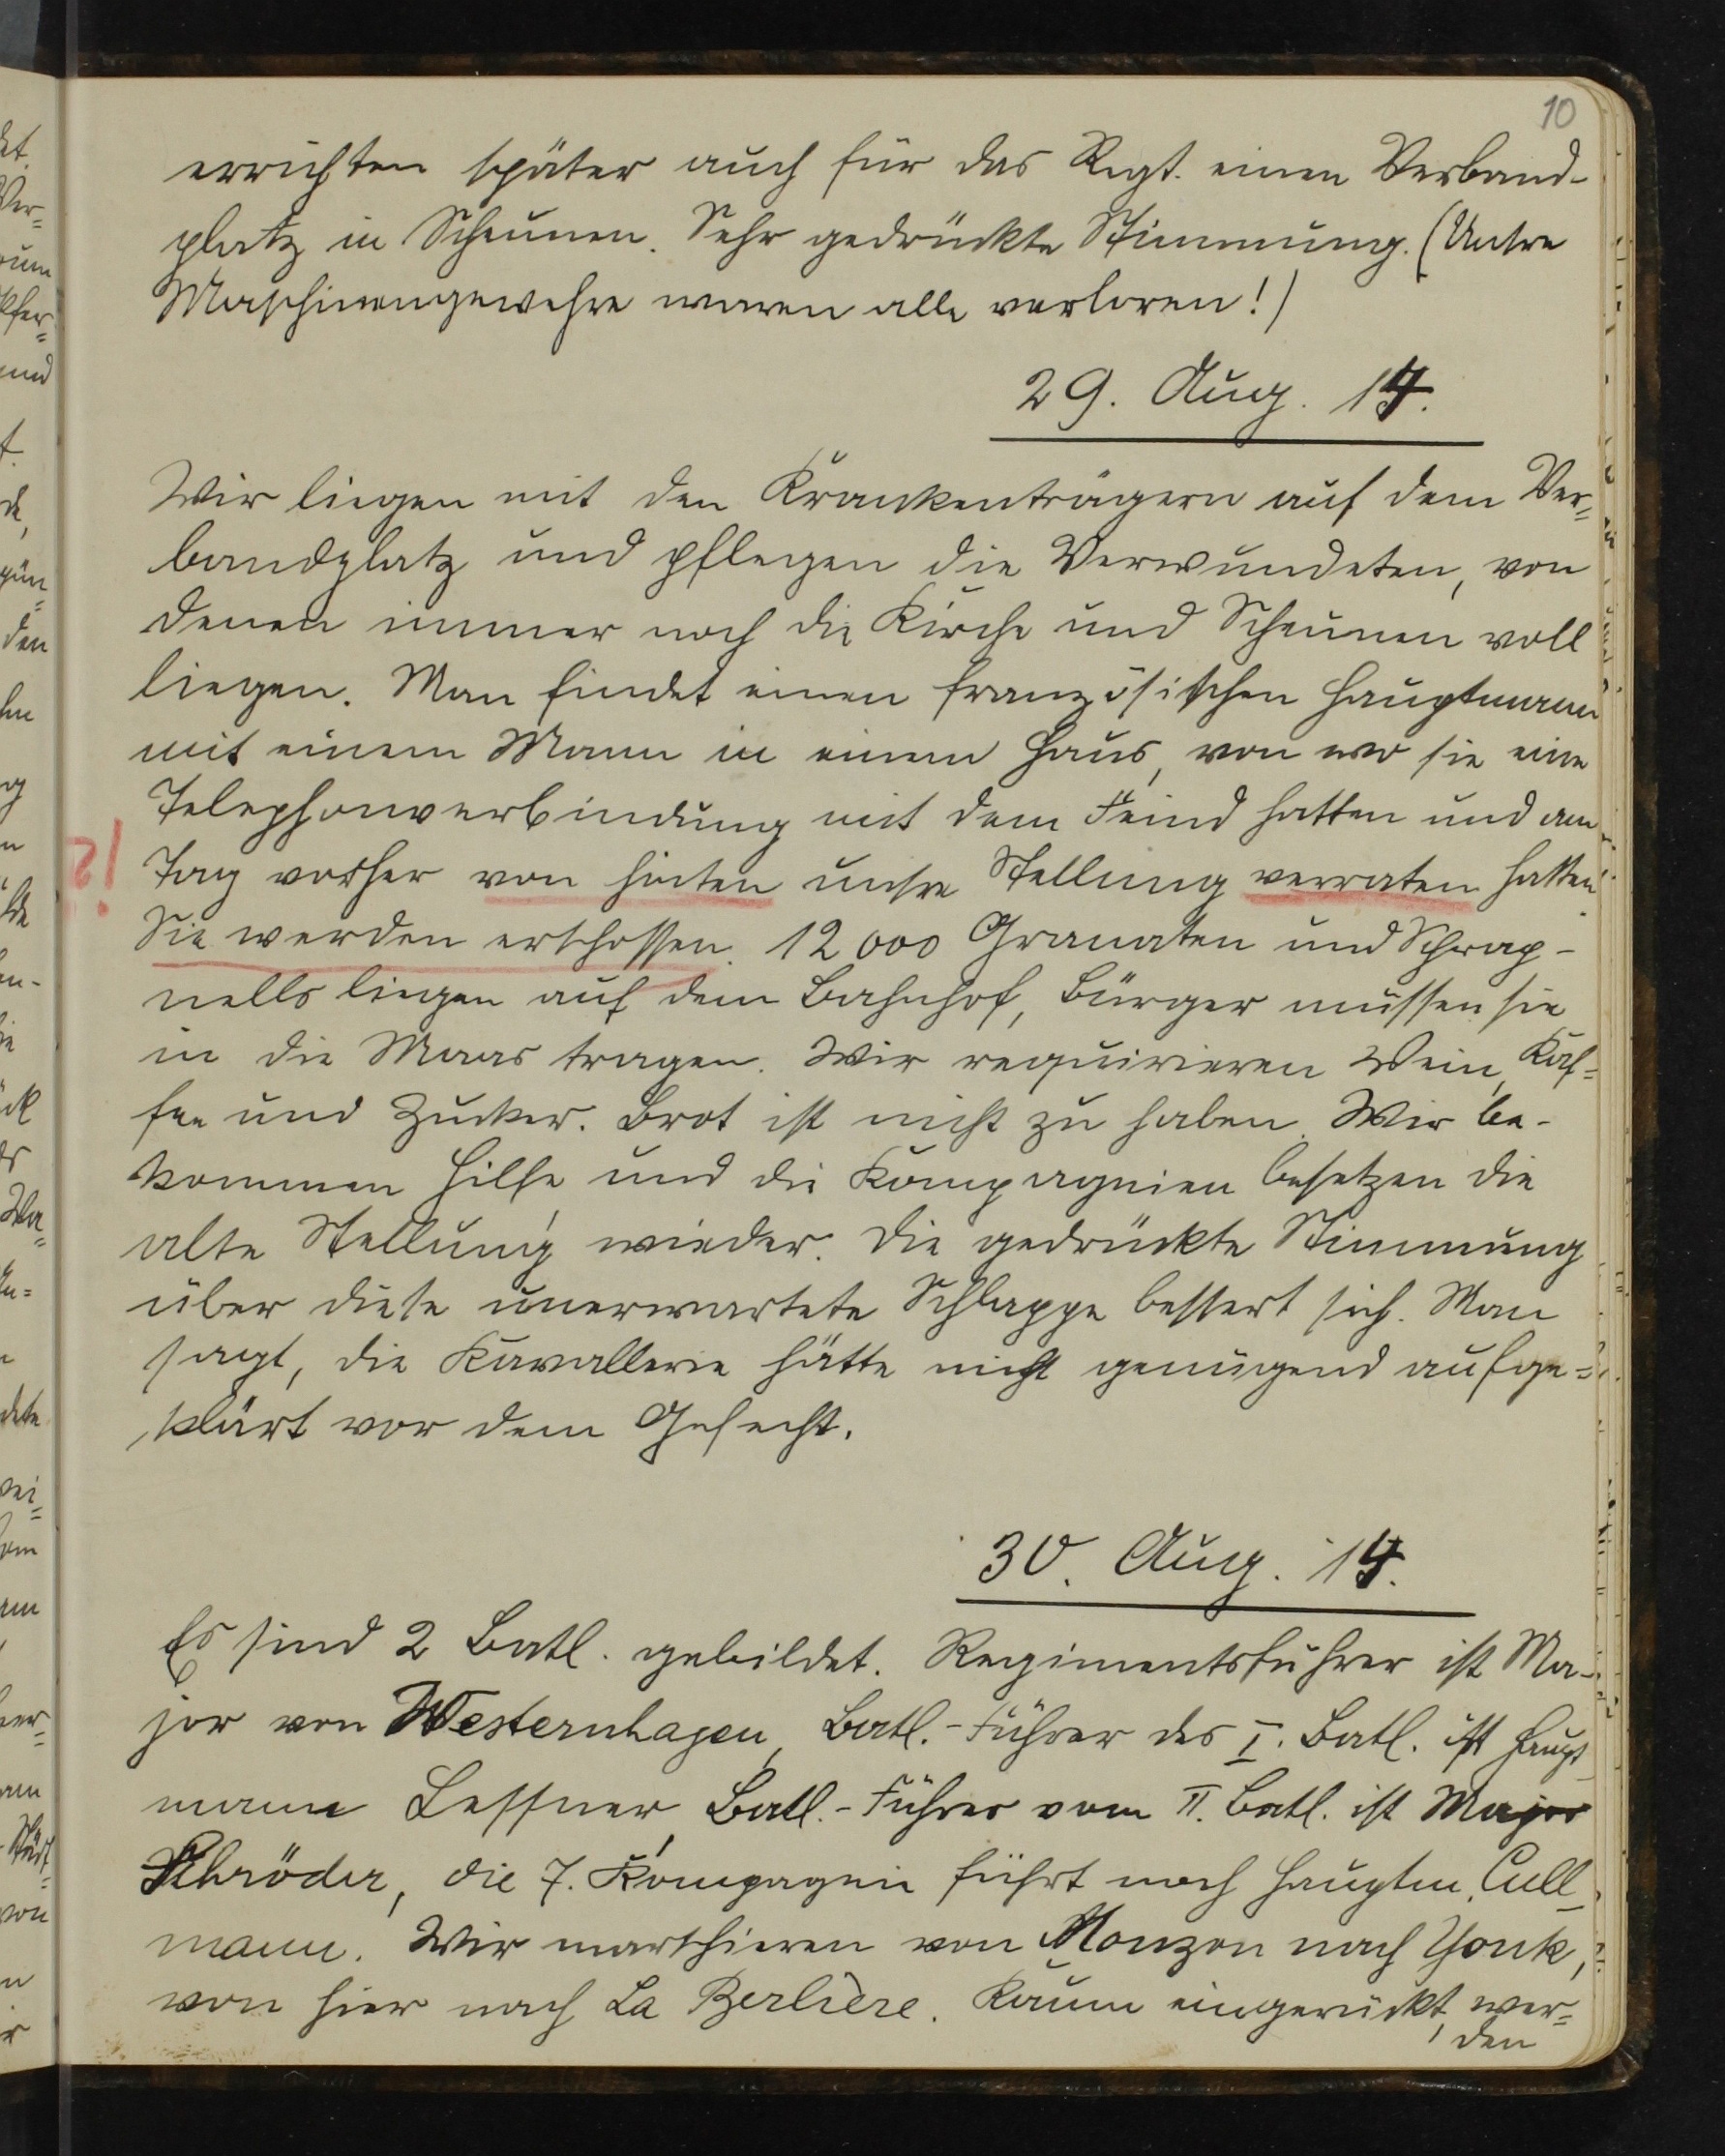 10
errichten später auch für das Regt. einen Verband-
platz in Scheunen. Sehr gedrückte Stimmung. (Unsre
Maschinengewehre waren alle verloren!)
29. Aug. 14.
Wir liegen mit den Krankenträgern auf dem Ver=
bandplatz und pflegen die Verwundeten, von
denen immer noch die Kirche und Scheunen voll
liegen. Man findet einen französischen Hauptmann
mit einem Mann in einem Haus, von wo sie eine
Telephonverbindung mit dem Feind hatten und am
?! Tag vorher von hinten unsre Stellung verraten hatten.
Sie werden erschossen. 12 000 Granaten und Schrap-
nells liegen auf dem Bahnhof, Bürger müssen sie
in die Maas tragen. Wir requirieren Wein, Kaf=
fee und Zucker. Brot ist nicht zu haben. Wir be-
kommen Hilfe und die Kompagnien besetzen die
alte Stellung wieder. Die gedrückte Stimmung
über diese unerwartete Schlappe bessert sich. Man
sagt, die Kavallerie hätte nicht genügend aufge=
klärt vor dem Gefecht.
30. Aug. 14.
Es sind 2 Batl. gebildet. Regimentsführer ist Ma-
jor von Westernhagen, Batl.-Führer des I. Batl. ist Haupt-
mann Lessner, Batl.-Führer vom II. Batl. ist Major
Schröder, die 7. Kompagnie führt noch Hauptm. Cull-
mann. Wir marschieren von Mouzon nach Yonk,
von hier nach La Berlière. Kaum eingerückt, wer=
den